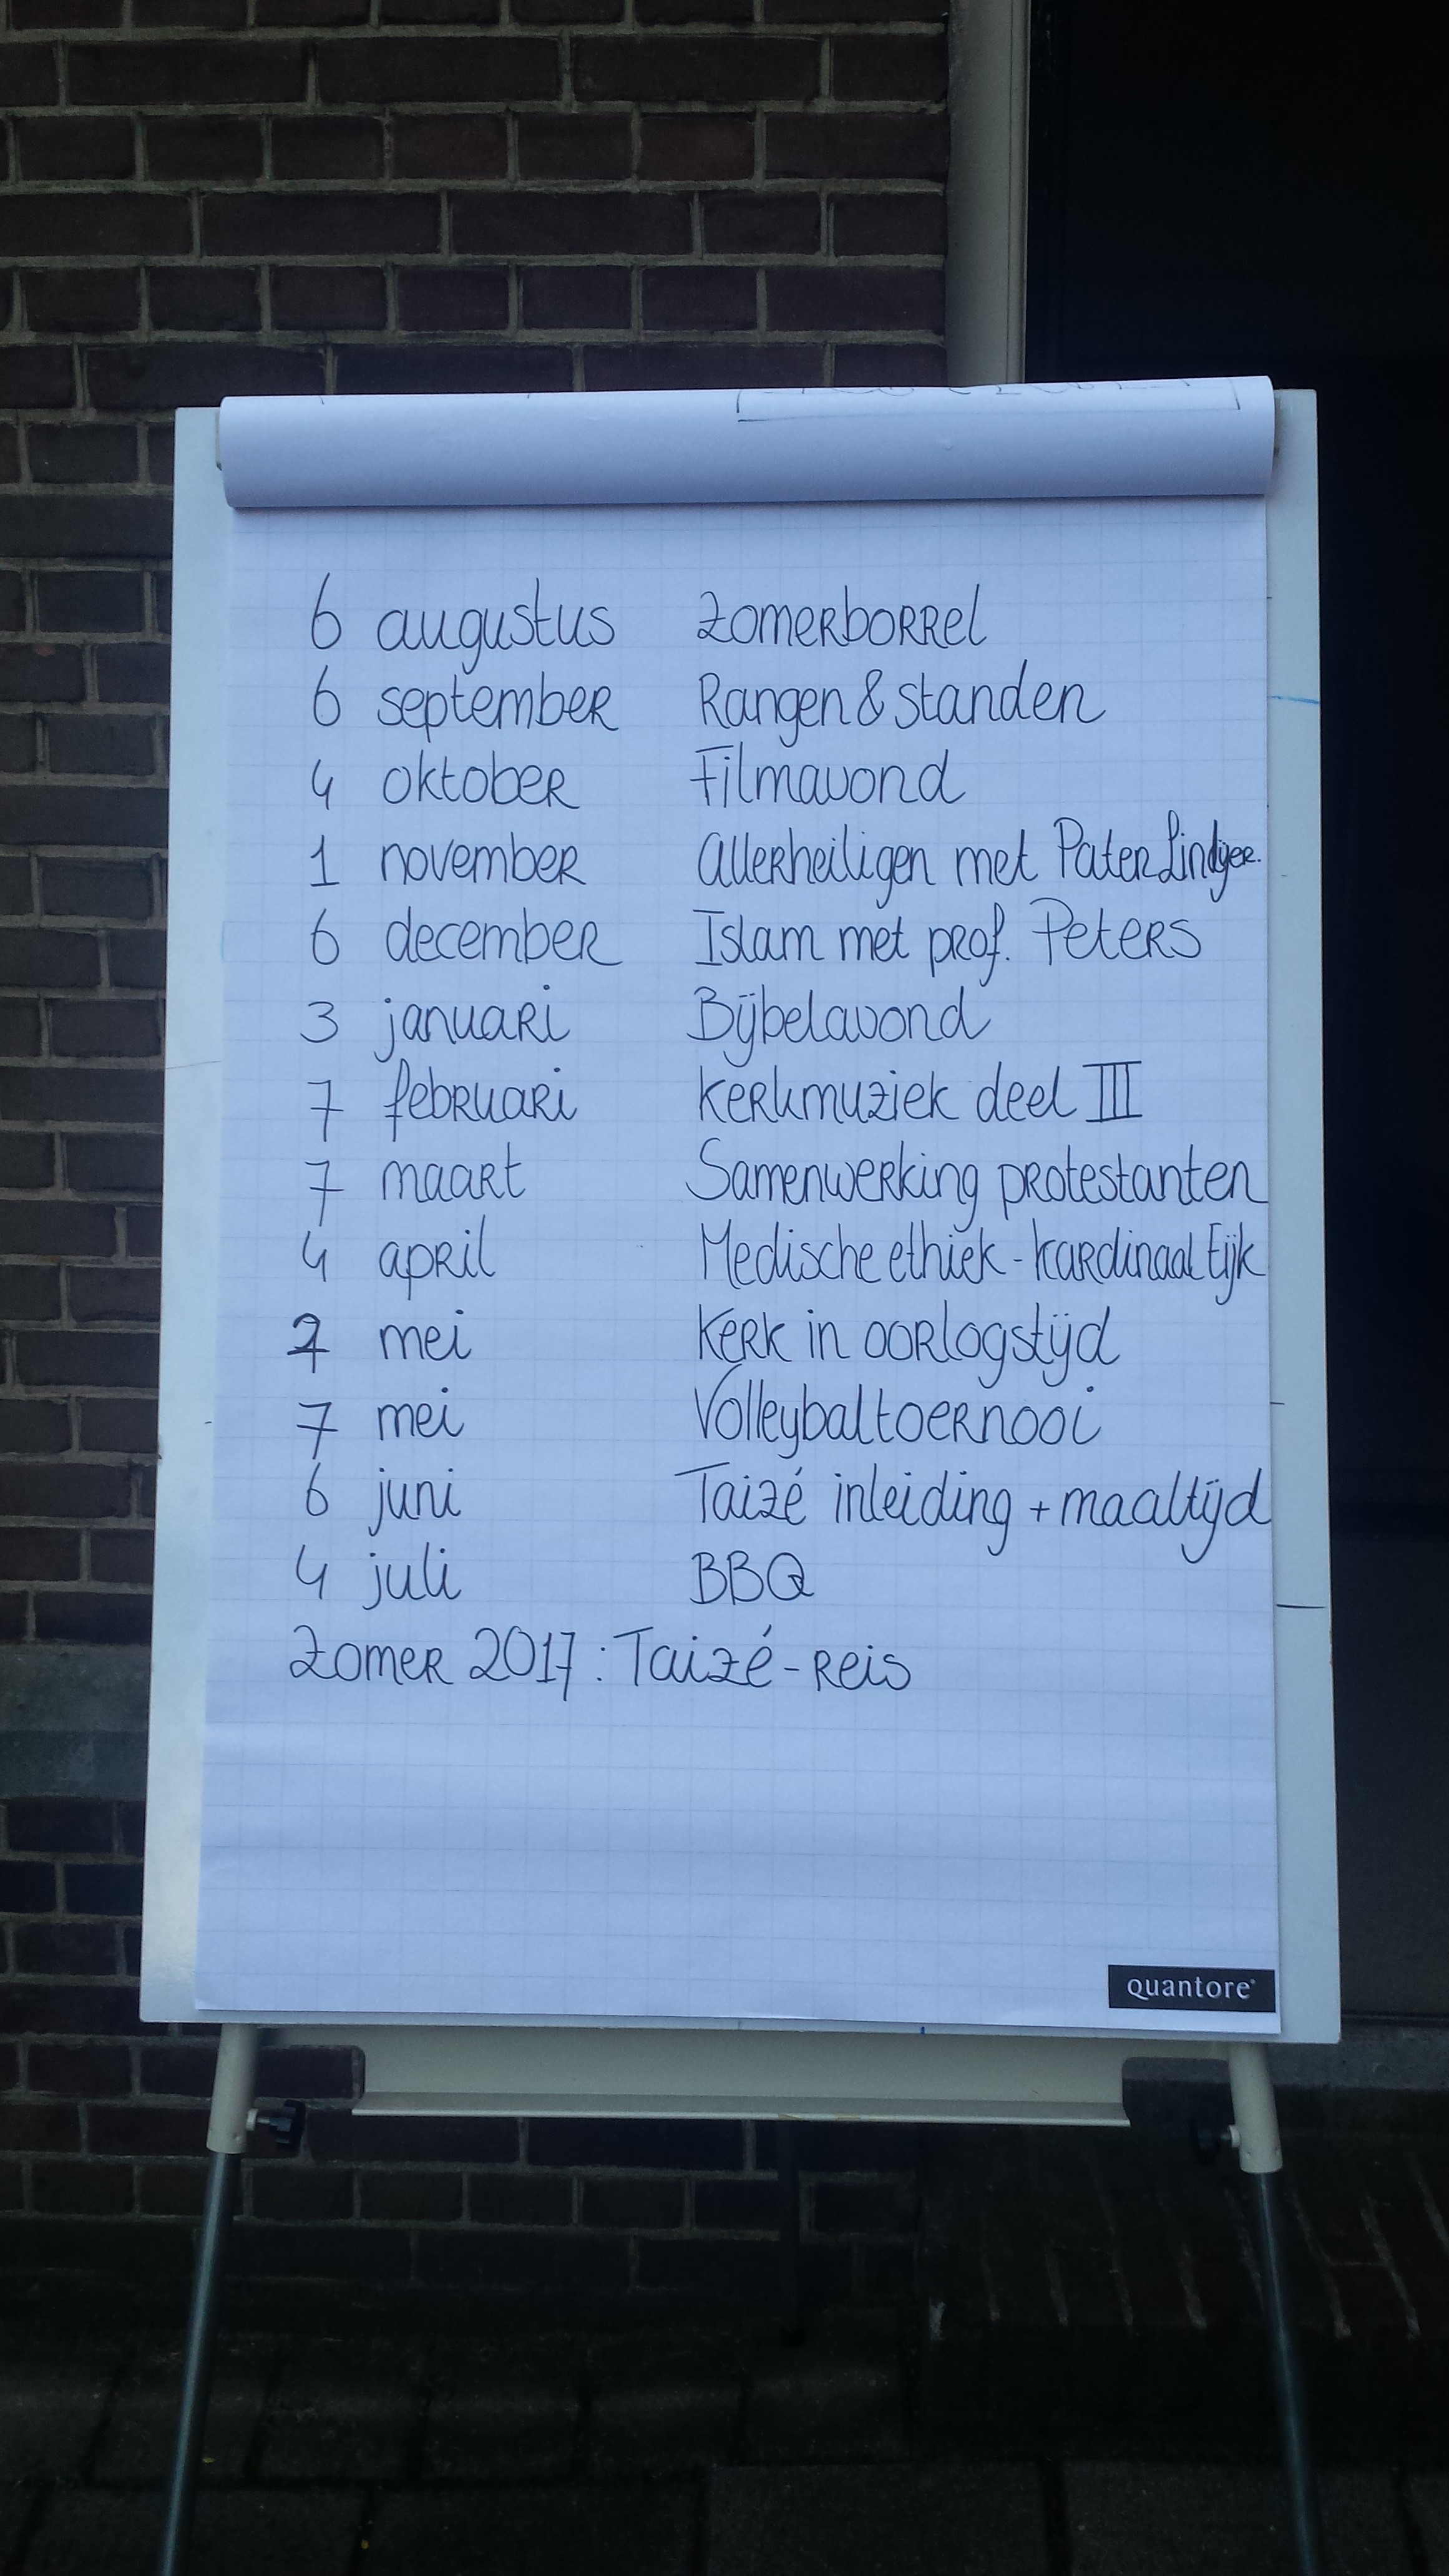 6 augustus Zomerborrel
6 september Rangen & standen
4 oktober Filmavond
1 november Allerheiligen met Pater Lindijer.
6 december Islam met prof. Peters
3 januari Bijbelavond
7 februari Kerkmuziek deel III
7 maart Samenwerking protestanten
4 april Medische ethiek - kardinaal Eijk
mei Kerk in oorlogstijd
7 mei Volleybaltoernooi
6 juni Taizé inleiding + maaltijd
4 juli BBQ
Zomer 2017 : Taizé - reis
quantore